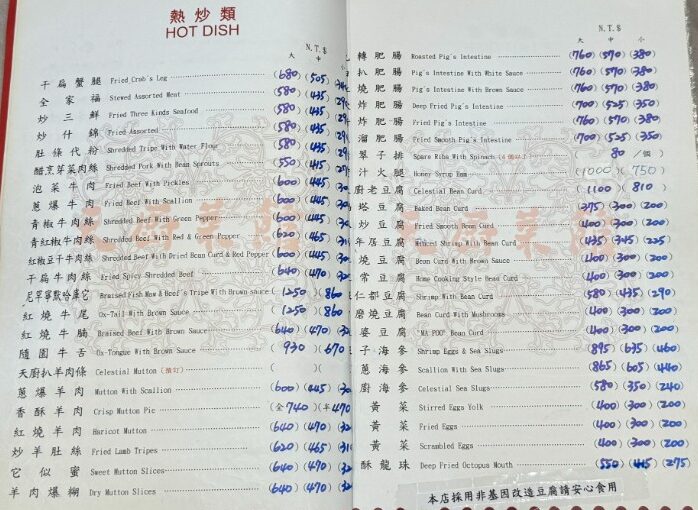 熱炒類
HOT DISH
N.T.$
大 中
干扁蟹腿 Fried Crab's Leg (680) (505)
全家福 Stewed Assorted Meat (580) (435)
炒三鮮 Fried Three Kinds Seafood (580) (435)
炒什錦 Fried Assorted (580) (435)
肚條代粉 Shredded Tripe With Water Flour (580) (435)
醋烹芽菜肉絲 Shredded Pork With Bean Sprouts (550) (415)
泡菜牛肉 Fried Beef With Pickles (600) (445)
蔥爆牛肉 Fried Beef With Scallion (600) (445)
青椒牛肉絲 Shredded Beef With Green Pepper (600) (445)
青紅椒牛肉絲 Shredded Beef With Red & Green Pepper (620) (465)
紅椒豆干牛肉絲 Shredded Beef With Dried Bean Curd & Red Pepper (600) (445)
干扁牛肉絲 Fried Spicy Shredded Beef (640) (470)
Braised Fish Maw & Beef's Tripe With Brown sauce (1250) (860
紅燒牛尾 Ox-Tail With Brown Sauce (1250) (860
紅燒牛腩 Braised Beef With Brown Sauce (640) (470)
隨園牛舌 Ox-Tongue With Brown Sauce (930) (670
天廚扒羊肉條 Celestial Mutton (預訂) ( ) (
蔥爆羊肉 Mutton With Scallion (600) (445)
香酥羊肉 Crisp Mutton Pic (全740) (半470
紅燒羊肉 Haricot Mutton (640) (470)
炒羊肚絲 Fried Lamb Tripes (620) (465)
它似蜜 Sweet Mutton Slices (640) (470)
羊肉爆糊 Dry Mutton Slices (640) (470)
N.T.$
大 中 小
轉肥腸 Roasted Pig's Intestine (760) (570) (380)
扒肥腸 Pig's Intestine With White Sauce (760) (570) (380)
燒肥腸 Pig's Intestine With Brown Sauce (760) (570) (380)
炸肥腸 Deep Fried Pig's Intestine (700) (525) (350)
炸肥腸 Fried Pig's Intestine (760) (570) (380)
溜肥腸 Fried Smooth Pig's Intestine (700) (525) (350)
翠子排 Spare Ribs With Spinach 80 /個
汁火腿 Honey Syrup Ham (1000) (750)
廚老豆腐 Celestial Bean Curd (1100) (810)
塔豆腐 Baked Bean Curd (375) (300) (200)
炒豆腐 Fried Smooth Bean Curd (400) (300) (200)
年居豆腐 Minced Shrimp With Bean Curd (435) (345) (225)
燒豆腐 Bean Curd With Brown Sauce (400) (300) (200)
常豆腐 Home Cooking Style Bean Curd (400) (300) (200)
仁都豆腐 Shrimp With Bean Curd (580) (435) (290)
磨燒豆腐 Bean Curd With Mushrooms (400) (300) (200)
婆豆腐 "MA POO" Bean Curd (400) (300) (200)
子海參 Shrimp Eggs & Sea Slugs (895) (635) (460)
蔥海參 Scallion With Sea Slugs (865) (605) (440)
廚海參 Celestial Sea Slugs (580) (350) (240)
黃菜 Stirred Eggs Yolk (400) (300) (200)
黃菜 Fried Eggs (400) (300) (200)
黃菜 Scrambled Eggs (400) (300) (200)
酥龍珠 Deep Fried Octopus Mouth (550) (415) (275)
本店採用非基因改造豆腐請安心食用